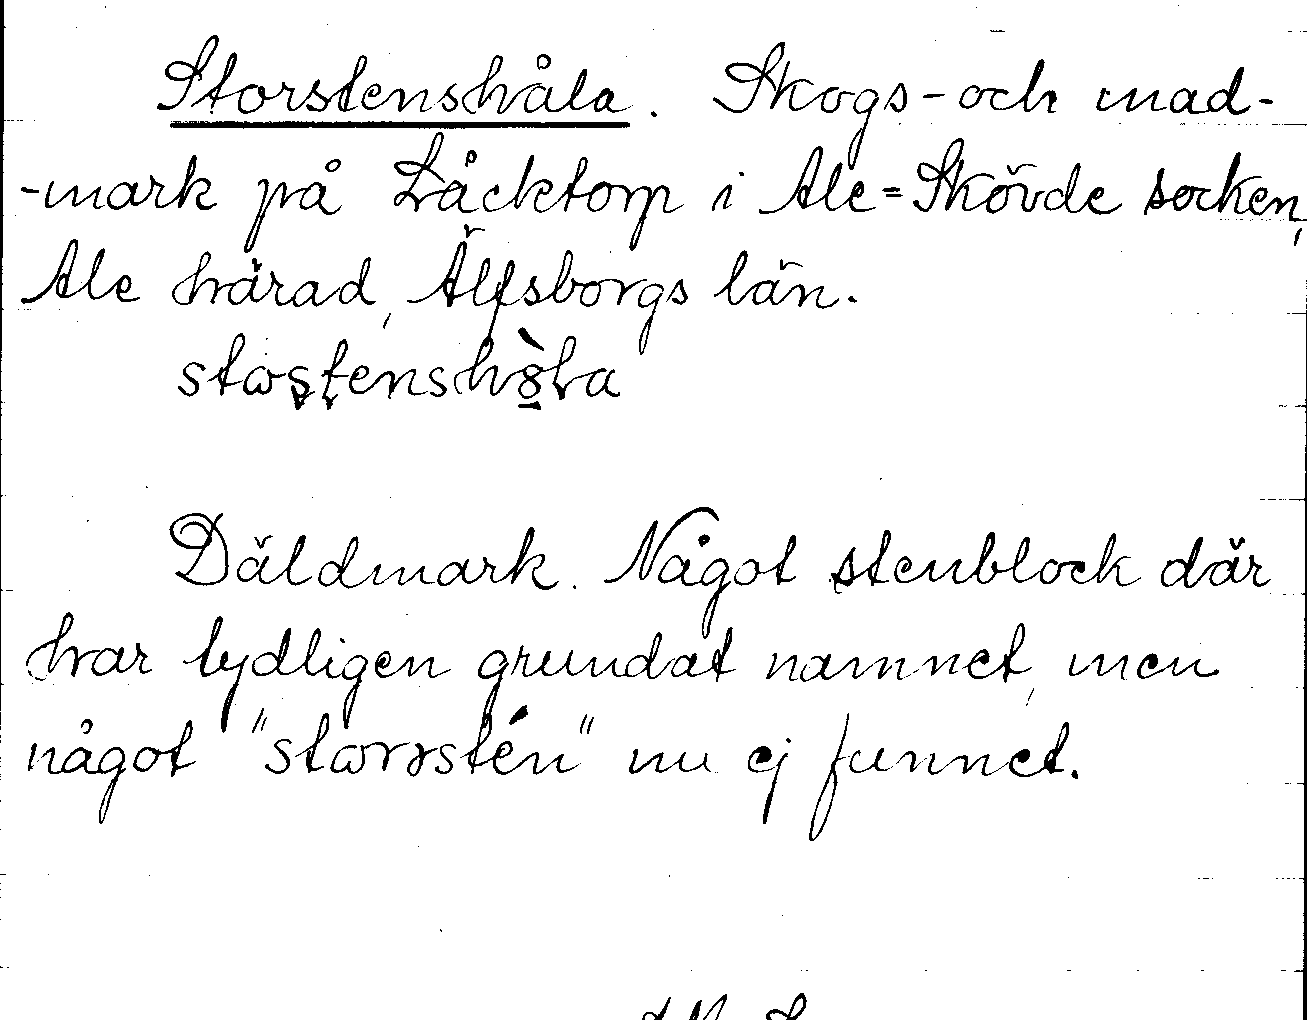 Storstenshåla. Skogs- och mad-
-mark på Låcktorp i Ale=Skövde socken,
Ale härad, Älfsborgs län.
Däldmark. Något stenblock där
har tydligen grundat namnet, men
något "storrstén" nu ej funnet.